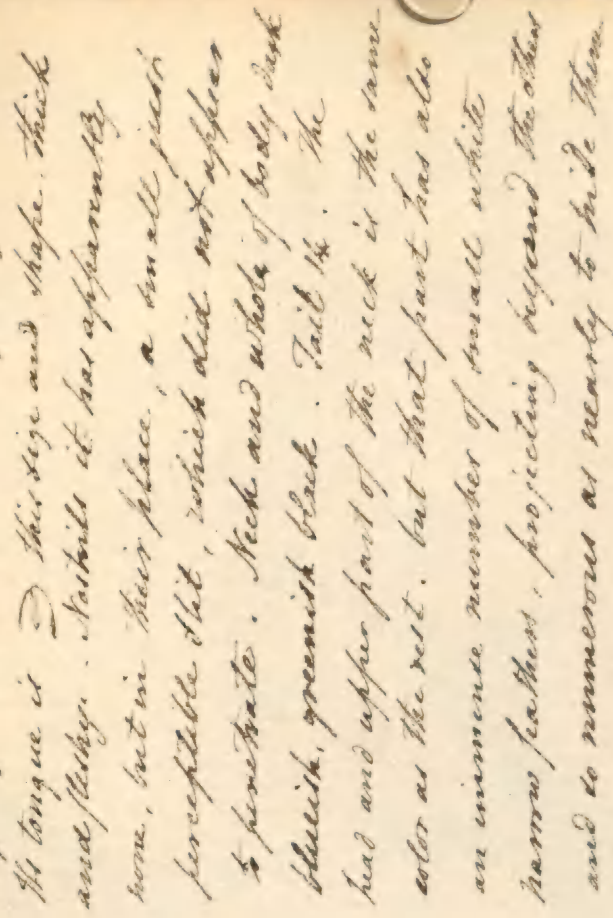 Its tongue is this size and shape. thick
and fleshy. Nostrils it has apparently
none, but in their place, a small just
perceptible slit, which did not appear
to penetrate. Neck and whole of body dark
blueish, greenish black. Tail do. The
head and upper part of the neck is the same
color as the rest. but that part has also
an immense number of small white
narrow feathers, projecting beyond the others
and so numerous as nearly to hide them